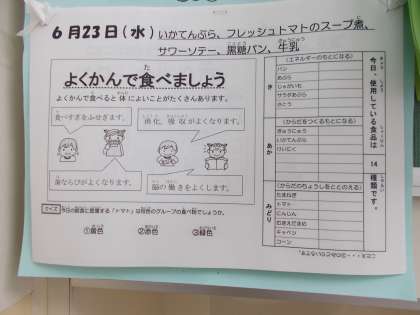 6月23日（水）いかてんぷら、フレッシュトマトのスープ煮、
サワーソテー、黒糖パン、牛乳
よくかんで食べましょう
よくかんで食べると体によいことがたくさんあります。
食べすぎをふせぎます。
消化、吸収がよくなります。
歯ならびがよくなります。
脳の働きをよくします。
クイズ 今日の給食に登場する「トマト」は何色のグループの食べ物でしょうか。
①黄色 ②赤色 ③緑色
今日、使用している食品は 14 種類です。
き
（エネルギーのもとになる）
パン
あぶら
じゃがいも
サラダあぶら
さとう
あか
（からだをつくるもとになる）
ぎゅうにゅう
いかてんぷら
けいにく
みどり
（からだのちょうしをととのえる）
たまねぎ
トマト
にんじん
むきえだまめ
キャベツ
コーン